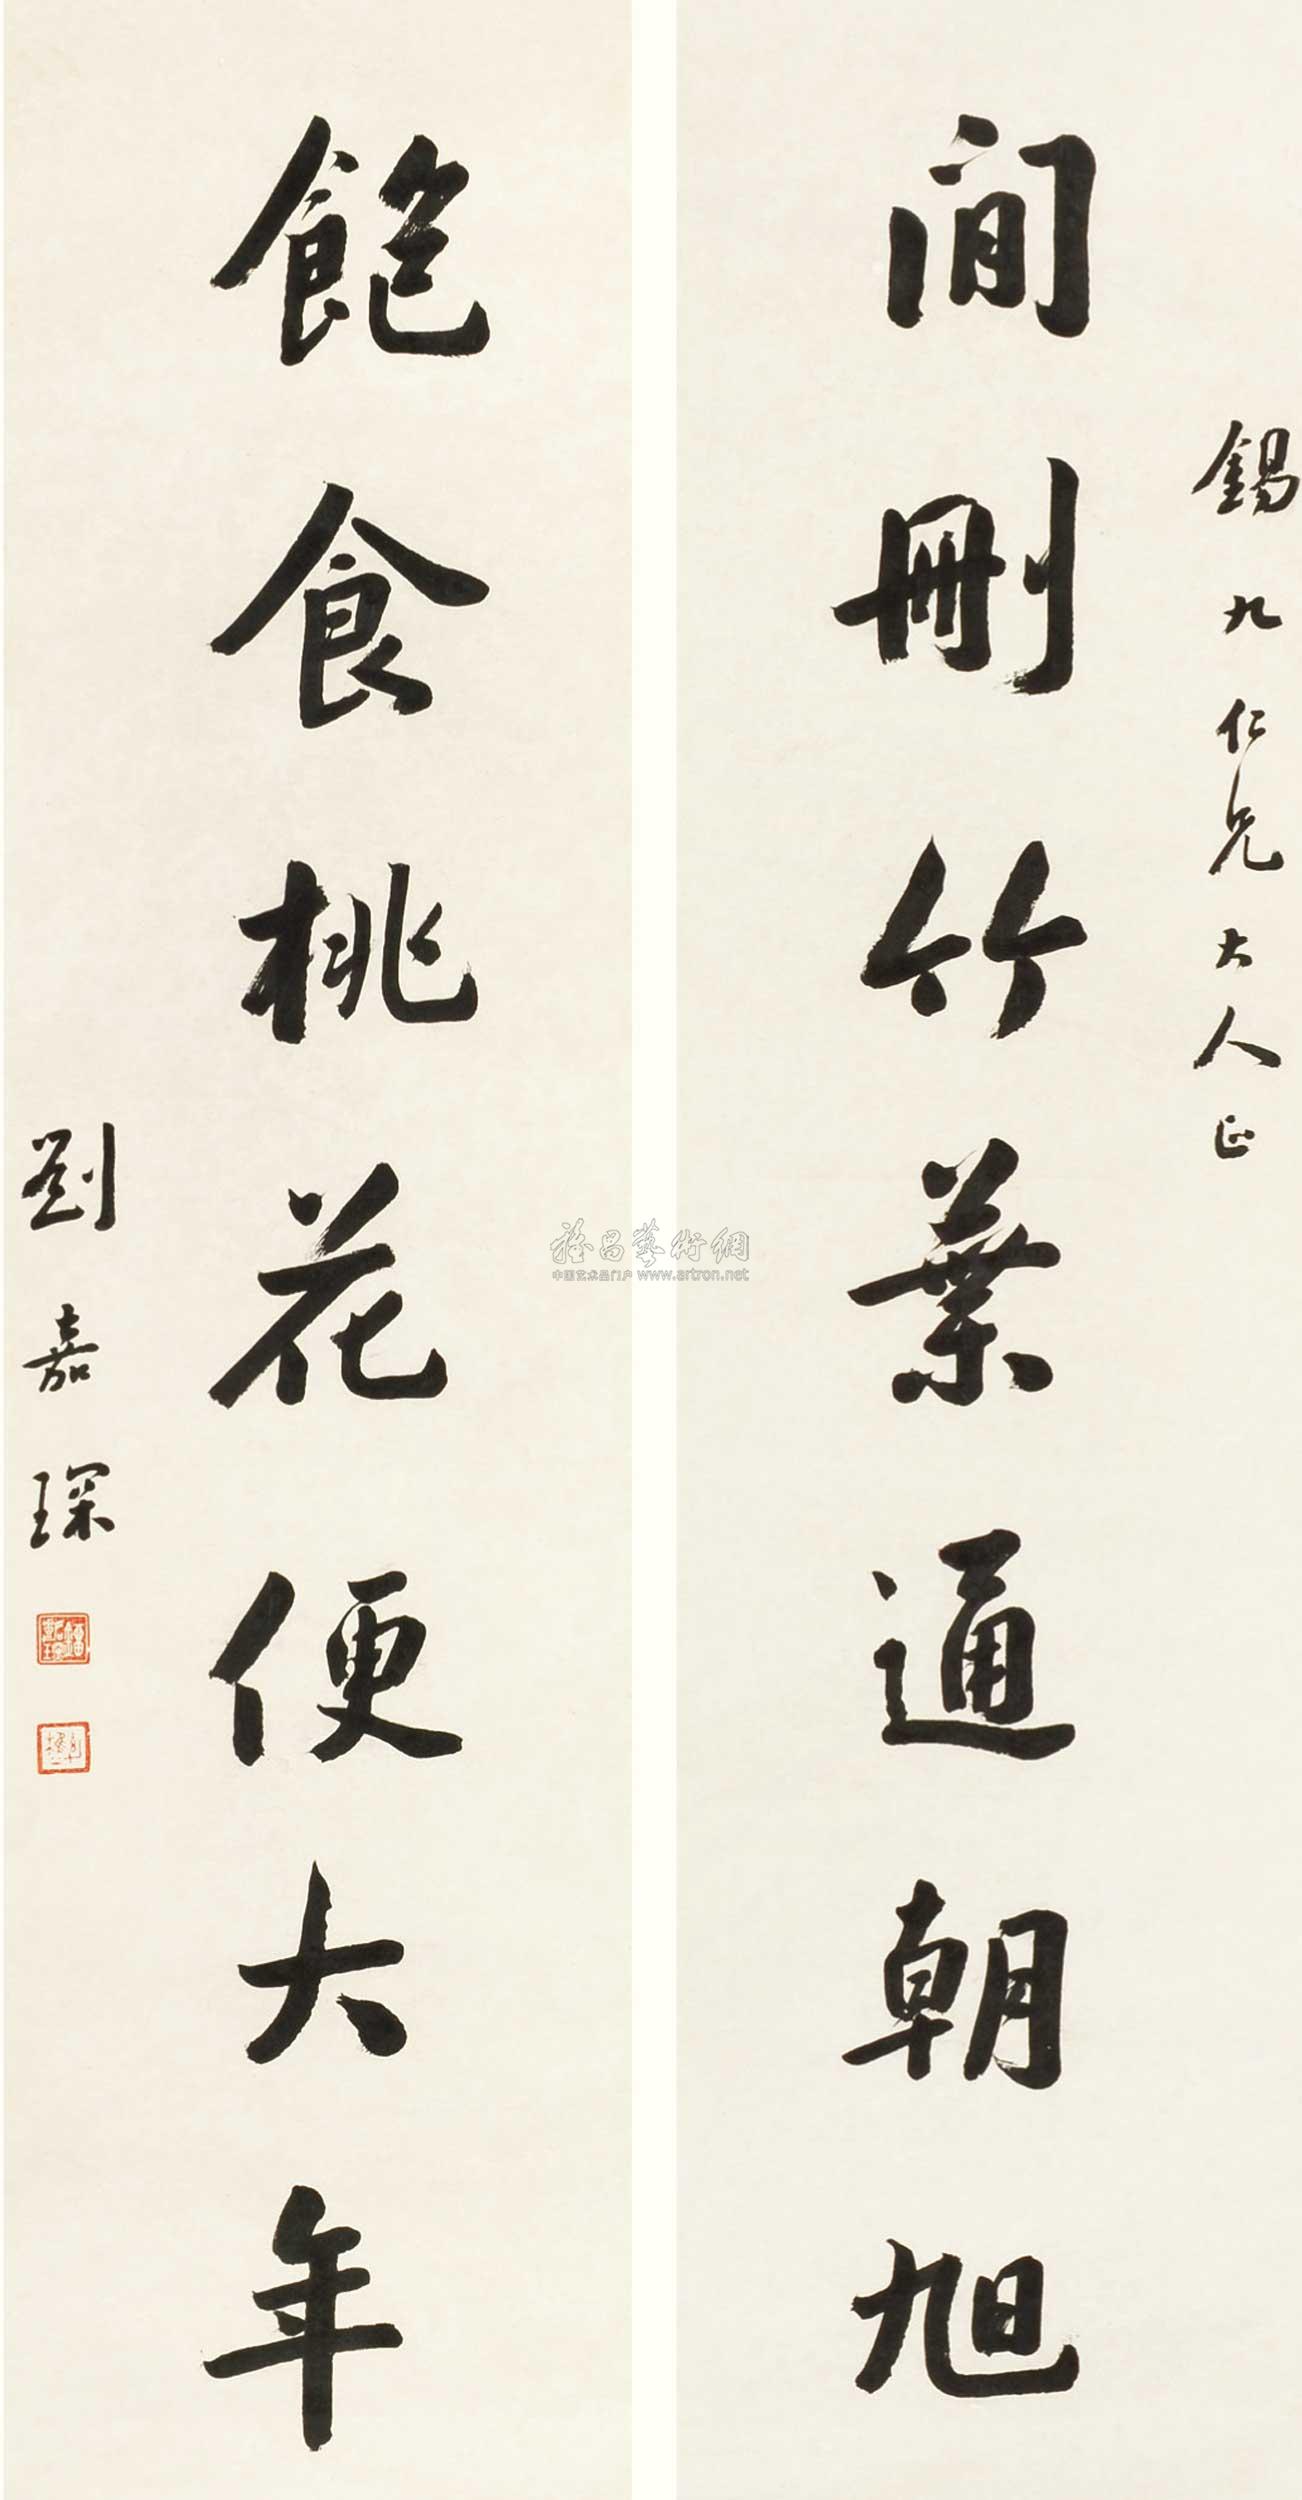 錫九仁兄大人正
閒刪竹葉通朝旭
飽食桃花便大年
劉嘉琛
雅昌藝術網
中国艺术品门户 www.artron.net